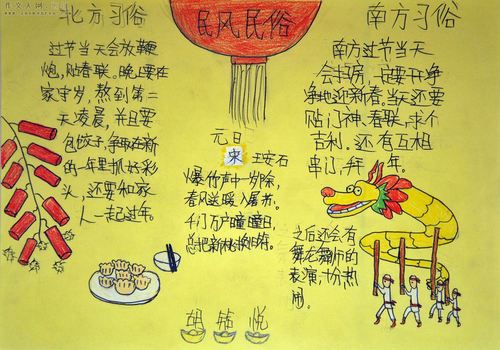 北方习俗
过节当天会放鞭
炮,贴春联。晚上要在
家守岁,熬到第二
天凌晨,并且要
包饺子,争取在新
的一年里抓好彩
头,还要和家
人一起过年。
民风民俗
元日
宋 王安石
爆竹声中一岁除,
春风送暖入屠苏。
千门万户曈曈日,
总把新桃换旧符。
南方习俗
南方过节当天
会扫房,一定要干净
净地迎新春。当天还要
贴门神、春联,求个
吉利。还有互相
串门,拜年。
之后还会有
舞龙舞狮的
表演,十分热
闹。